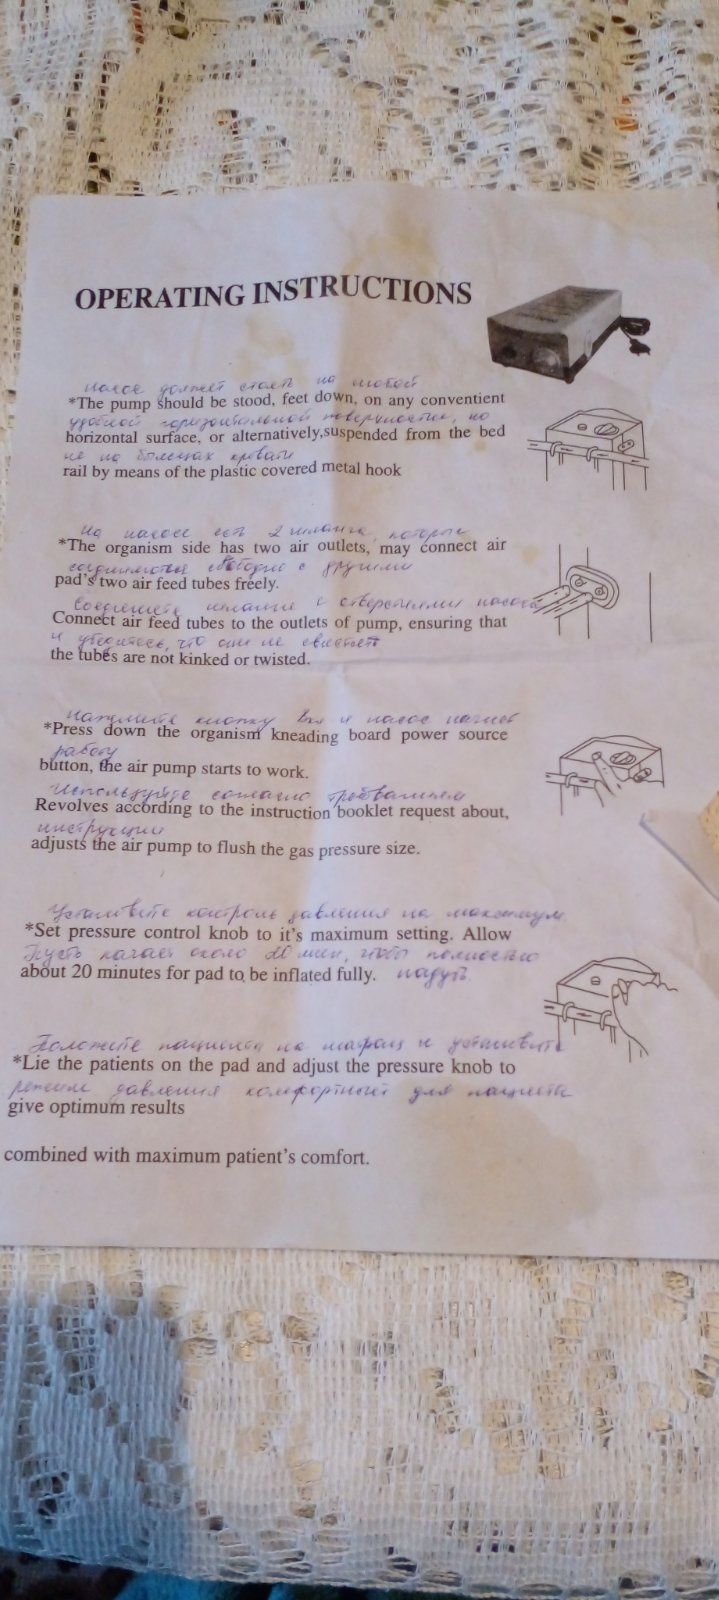 OPERATING INSTRUCTIONS
насос должен стоять на любой
*The pump should be stood, feet down, on any conventient
удобной горизонтальной поверхности, но
horizontal surface, or alternatively,suspended from the bed
не на быльцах кровати
rail by means of the plastic covered metal hook
На насосе есть 2 шланга, которые
*The organism side has two air outlets, may connect air
соединяются свободно с другими
pad's two air feed tubes freely.
Соедините шланги с отверстиями насоса
Connect air feed tubes to the outlets of pump, ensuring that
и убедитесь, что они не
the tubes are not kinked or twisted.
Нажмите кнопку Вкл и насос начнет
*Press down the organism kneading board power source
работу
button, the air pump starts to work.
Используйте согласно требованиям
Revolves according to the instruction booklet request about,
инструкции
adjusts the air pump to flush the gas pressure size.
Установите контроль давления на максимум
*Set pressure control knob to it's maximum setting. Allow
Пусть качает около 20 мин, чтобы полностью
about 20 minutes for pad to be inflated fully. надуть
Положите пациента на матрац и установите
*Lie the patients on the pad and adjust the pressure knob to
режим давления комфортный для пациента
give optimum results
combined with maximum patient's comfort.